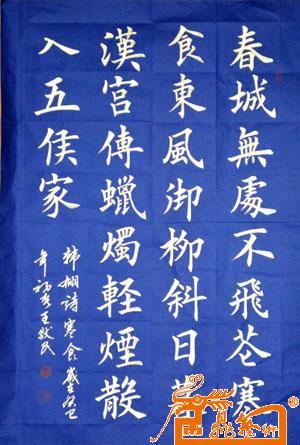 春城無處不飛花寒
食東風御柳斜日暮
漢宮傳蠟燭軽煙散
入五侯家
韓翃詩寒食